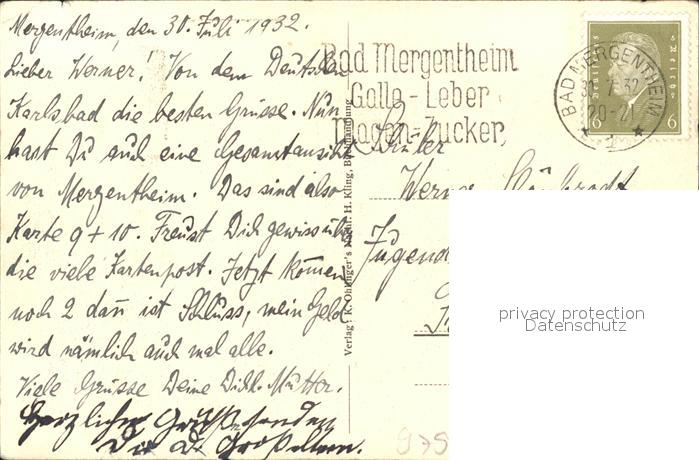 Mergentheim, den 30. Juli 1932.
Lieber Werner! Von dem Deutschen
Karlsbad die besten Grüsse. Nun
hast Du auch eine Gesamtansicht
von Mergentheim. Das sind also
Karte 9 + 10. Freust Dich gewiss über
die viele Kartenpost. Jetzt können
noch 2 dann ist Schluss, mein Geld
wird nämlich auch mal alle.
Viele Grüsse Deine Dichl. Mutter.
Herzliche Grüße senden
Dir d. Großeltern.
Verlag: K. Ohlinger's Nachf. H. Kling, Buchhandlung
Bad Mergentheim
Galle-Leber
Magen-Zucker
BAD MERGENTHEIM
7.32
20-21
Deutsches Reich
6 6
Schüler
Werner
Jugend
privacy protection
Datenschutz
975